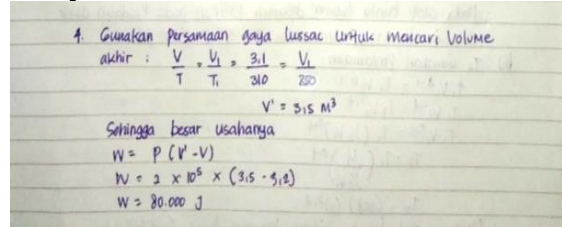 4. Gunakan Persamaan gaya lussac untuk mencari Volume
akhir : V/T = V₁/T₁ = 3,1/310 = V₁/350
V' = 3,5 M³
Sehingga besar usahanya
W = P (V' - V)
W = 2 x 10⁵ x (3,5 - 3,2)
W = 80.000 J